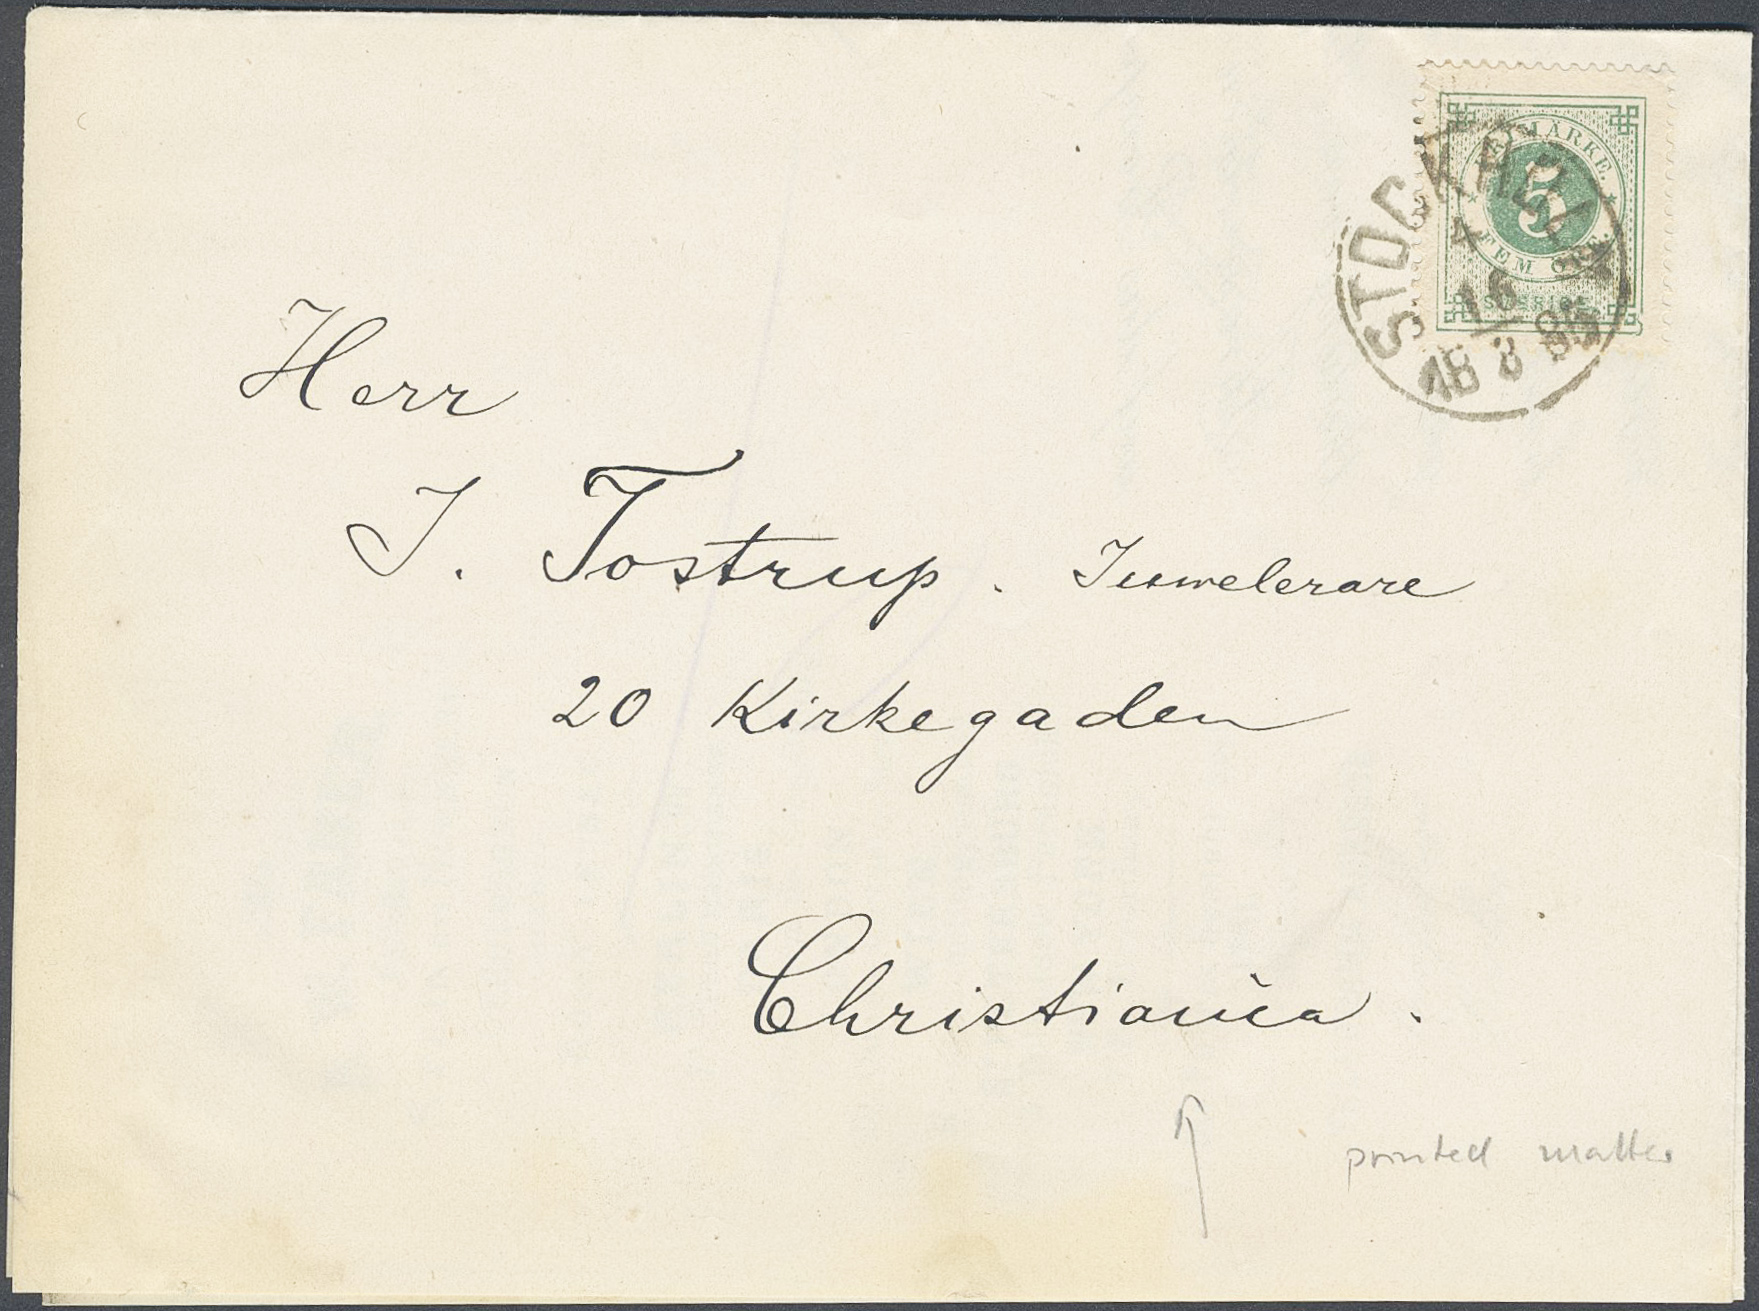 FRIMÄRKE.
5
FEM ÖRE.
SVERIGE
STOCKHOLM
16
18 3 85
Herr
J. Tostrup. Juwelerare
20 Kirkegaden
Christiania.
printed matter